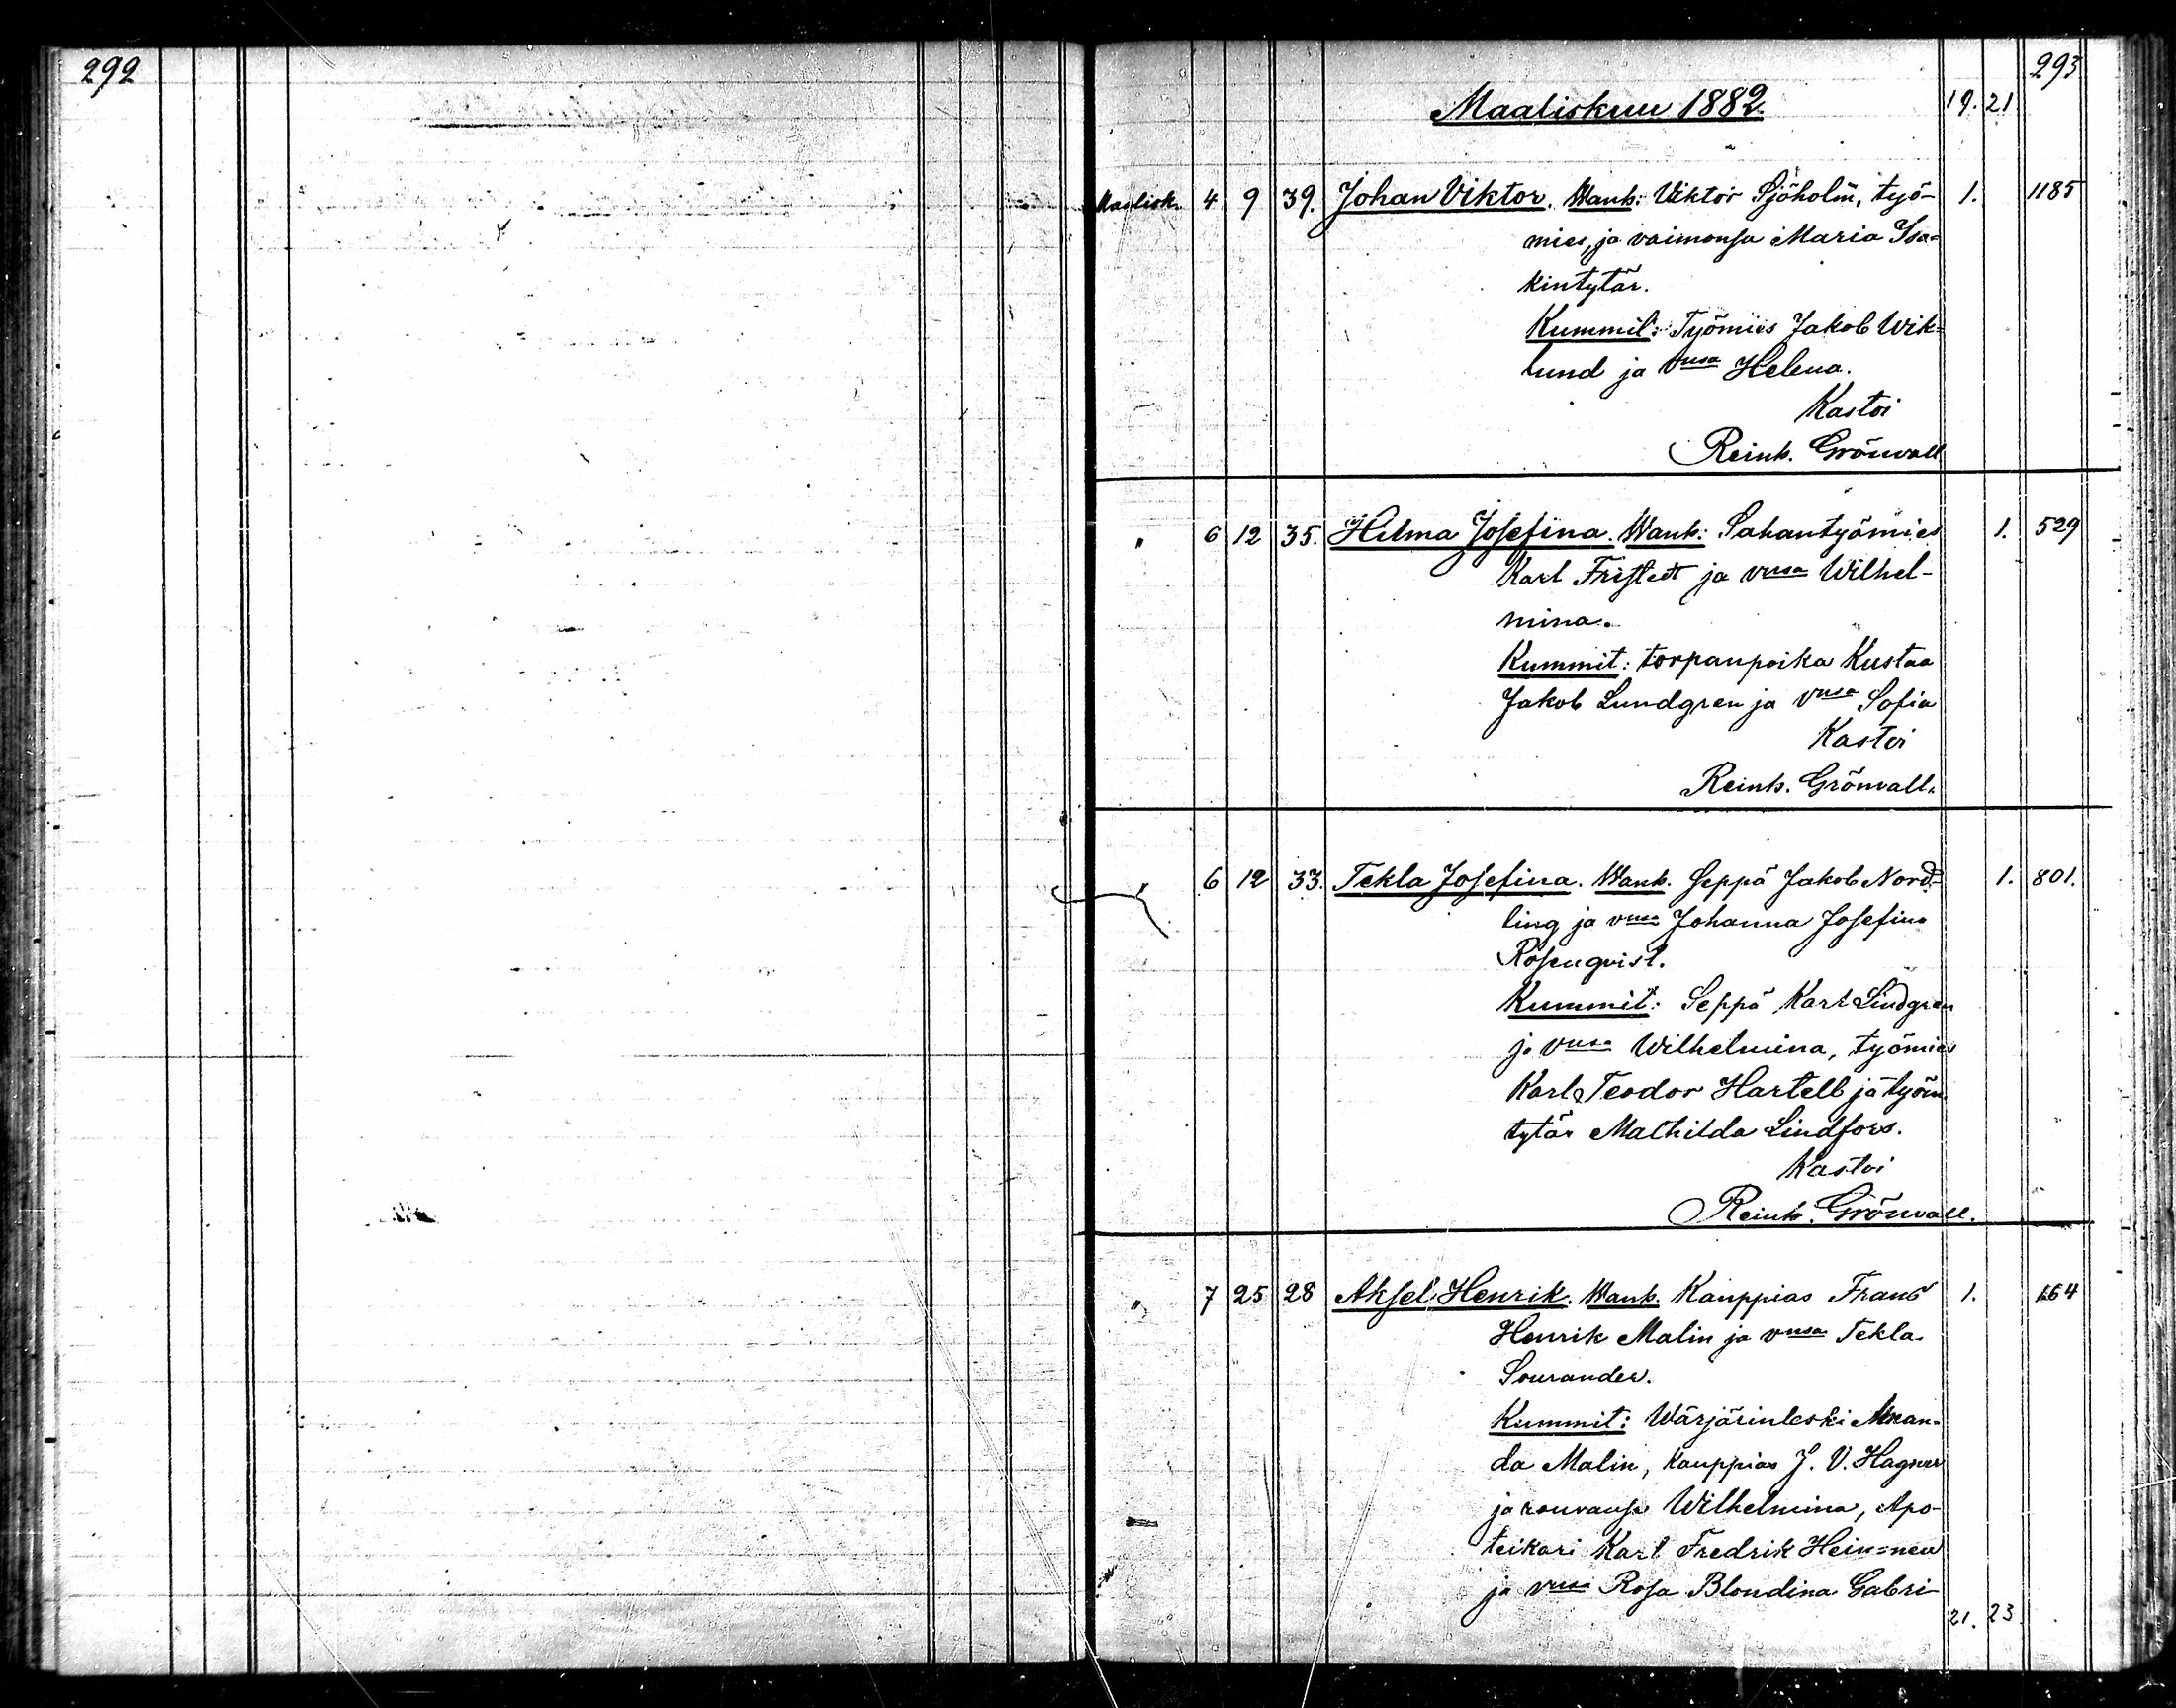 292
293
Maaliskuu 1882.
19. 21
Maalisk. 4 9 39. Johan Viktor. Wanh: Viktor Sjöholm, työ- 1. 1185
mies, ja vaimonsa Maria Isa=
kintytär.
Kummit: Työmies Jakob Wik=
lund ja vnsa Helena.
Kastoi
Reinh. Grönvall
" 6 12 35. Hilma Josefina. Wanh: Sahantyömies 1. 529
Karl Fristedt ja vnsa Wilhel-
mina.
Kummit: torpanpoika Kustaa
Jakob Lundgren ja vnsa Sofia
Kastoi
Reinh. Grönvall.
" 6 12 33. Tekla Josefina. Wanh. Seppä Jakob Nord= 1. 801.
ling ja vnsa Johanna Josefina
Rosenqvist.
Kummit: Seppä Karl Lindgren
ja vnsa Wilhelmina, työmies
Karl Teodor Hartell ja työm.
tytär Mathilda Lindfors.
Kastoi
Reinh. Grönvall.
" 7 25 28 Aksel Henrik. Wanh. Kauppias Frans 1. 164
Henrik Malin ja vnsa Tekla
Sourander.
Kummit: Wärjärinleski Aman=
da Malin, kauppias J. V. Hagner
ja rouvansa Wilhelmina, Apo-
teikari Karl Fredrik Hein=nen
ja vnsa Rosa Blondina Gabri-
21. 23